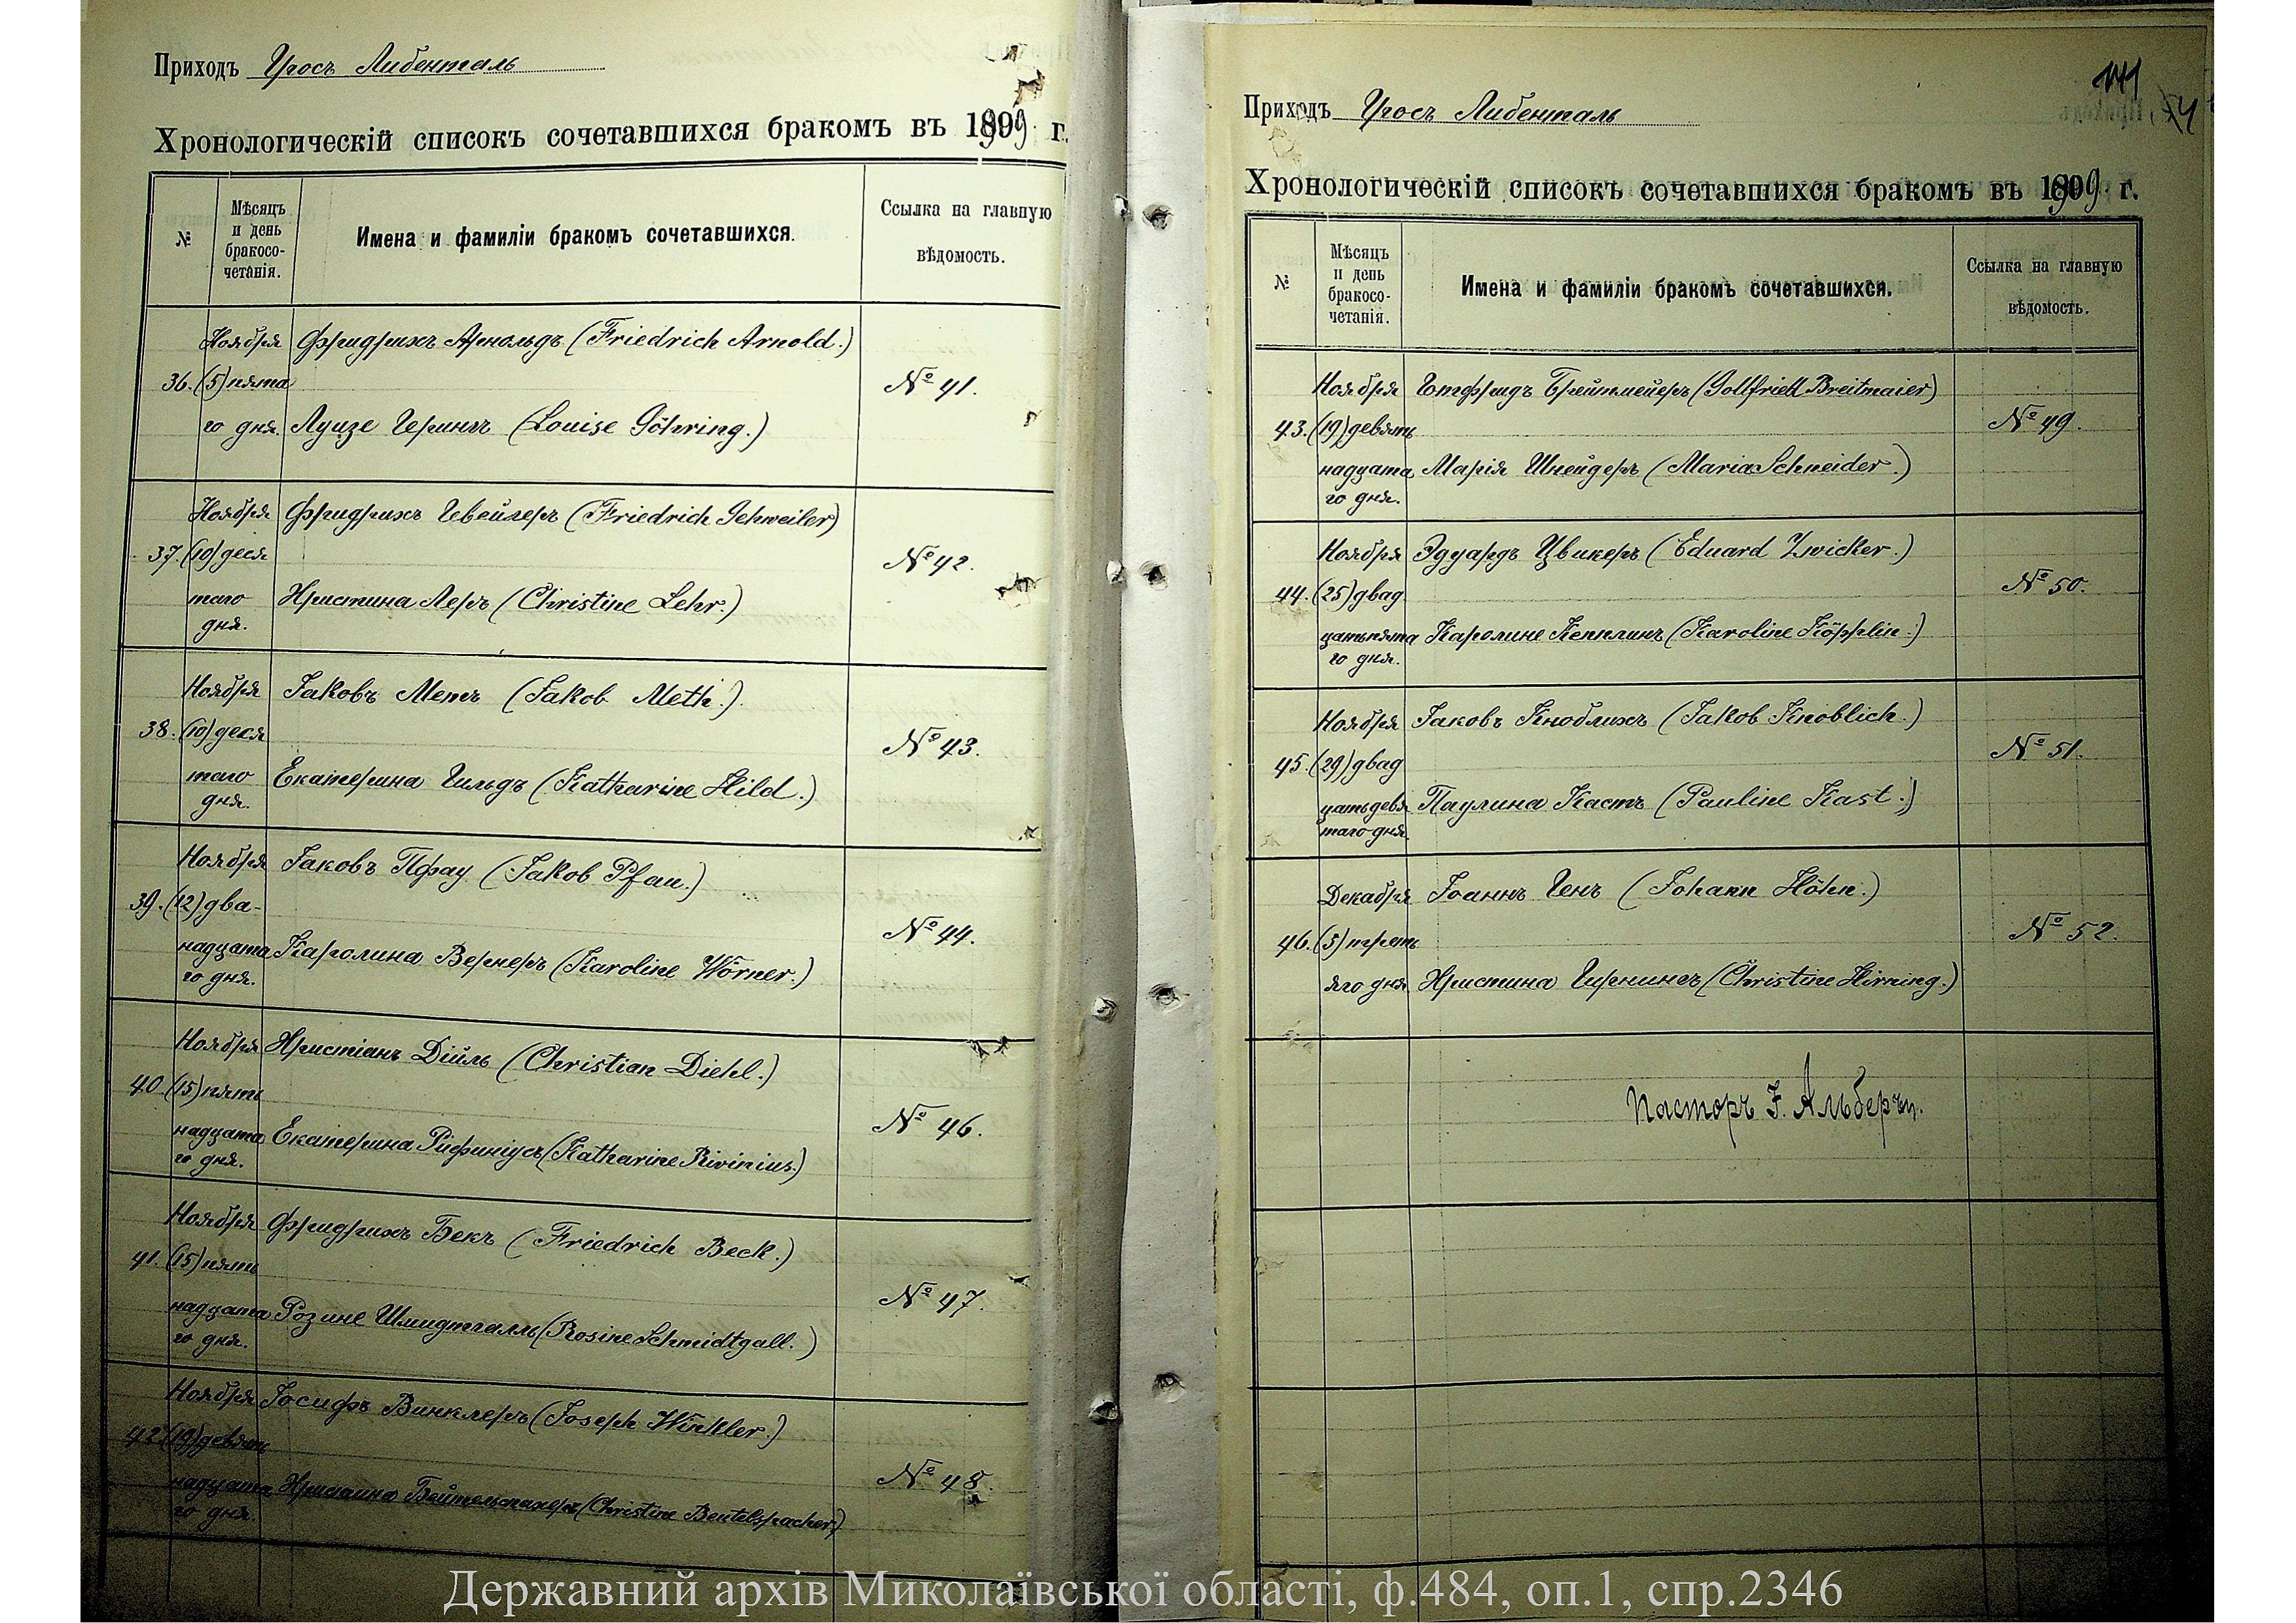 Приходъ Гросъ Либенталь
Хронологическій списокъ сочетавшихся бракомъ въ 1909 г.
№
Мѣсяцъ
и день
бракосо-
четанія.
Имена и фамиліи бракомъ сочетавшихся.
Ссылка на главную
вѣдомость.
Ноября Фридрихъ Арнольдъ (Friedrich Arnold.)
36. (5) пята
№ 41.
го дня. Луизе Герингъ (Louise Göhring.)
Ноября Фридрихъ Гевейлеръ (Friedrich Gehweiler)
37. (10) деся
№ 42.
таго Христина Леръ (Christine Lehr.)
дня.
Ноября Іаковъ Метъ (Jakob Meth.)
38. (10) деся
№ 43.
таго Екатерина Гильдъ (Katharine Hild.)
дня.
Ноября Іаковъ Пфау (Jakob Pfau.)
39. (12) два-
№ 44.
надцата Каролина Вернеръ (Karoline Wörner.)
го дня.
Ноября Христіанъ Дійль (Christian Diehl.)
40. (15) пять
№ 46.
надцата Екатерина Рифиніусъ (Katharine Rivinius.)
го дня.
Ноября Фридрихъ Бекъ (Friedrich Beck.)
41. (15) пять
№ 47.
надцата Розине Шмидтгалль (Rosine Schmidtgall.)
го дня.
Ноября Іосифъ Винклеръ (Joseph Winkler.)
42. (19) девять
№ 48.
надцата Христина Бейтельспахеръ (Christine Beutelspacher)
го дня.
141
Приходъ Гросъ Либенталь
Хронологическій списокъ сочетавшихся бракомъ въ 1909 г.
№
Мѣсяцъ
и день
бракосо-
четанія.
Имена и фамиліи бракомъ сочетавшихся.
Ссылка на главную
вѣдомость.
Ноября Готфридъ Брейтмейеръ (Gottfried Breitmaier)
43. (19) девять
№ 49.
надцата Марія Шнейдеръ (Maria Schneider.)
го дня.
Ноября Эдуардъ Цвикеръ (Eduard Zwicker.)
44. (25) двад
№ 50.
цатьпята Каролине Кепплинъ (Karoline Köpplin.)
го дня.
Ноября Іаковъ Кноблихъ (Jakob Knoblich.)
45. (29) двад
№ 51.
цатьдевя Паулина Кастъ (Pauline Kast.)
таго дня.
Декабря Іоаннъ Генъ (Johann Höhn.)
46. (3) треть
№ 52.
яго дня Христина Гирнингъ (Christine Hirning.)
Пасторъ J. Альберъ.
Державний архів Миколаївської області, ф.484, оп.1, спр.2346